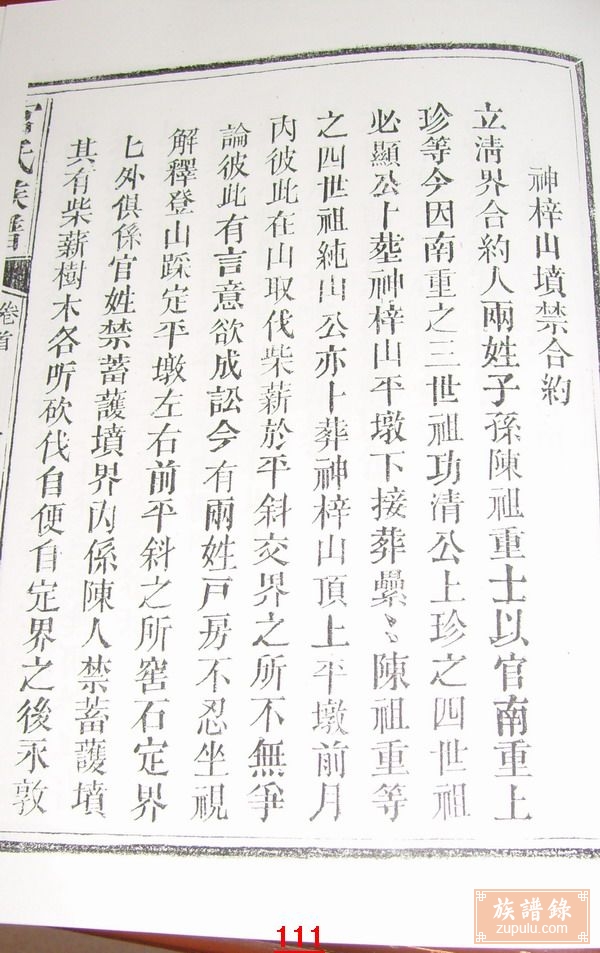 神梓山墳禁合約
立淸界合約人兩姓子孫陳祖重士以官南重上
珍等今因南重之三世祖功清公上珍之四世祖
必顯公卜塟神梓山平墩下接葬纍〻陳祖重等
之四世祖純山公亦卜葬神梓山頂上平墩前月
內彼此在山取伐柴薪於平斜交界之所不無爭
論彼此有言意欲成訟今有兩姓戸房不忍坐視
解釋登山踩定平墩左右前平斜之所窖石定界
上外俱係官姓禁蓄護墳界內係陳人禁蓄護墳
其有柴薪樹木各听砍伐自便自定界之後永敦
氏族譜
卷首
111
族譜錄
zupulu.com